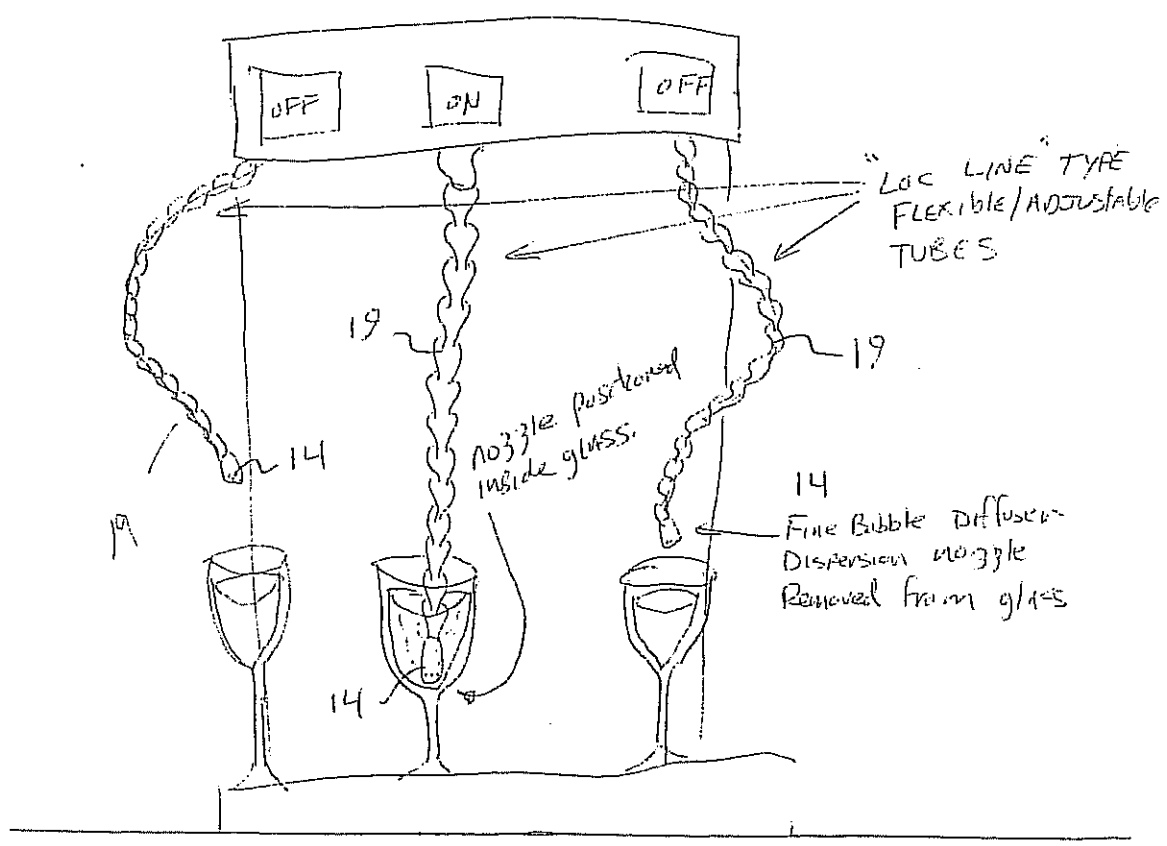 OFF
ON
OFF
"LOC LINE" TYPE
FLEXIBLE/ADJUSTABLE
TUBES
19
19
nozzle positioned
inside glass.
14
19
14
Fine Bubble Diffuser
Dispersion nozzle
Removed from glass
14